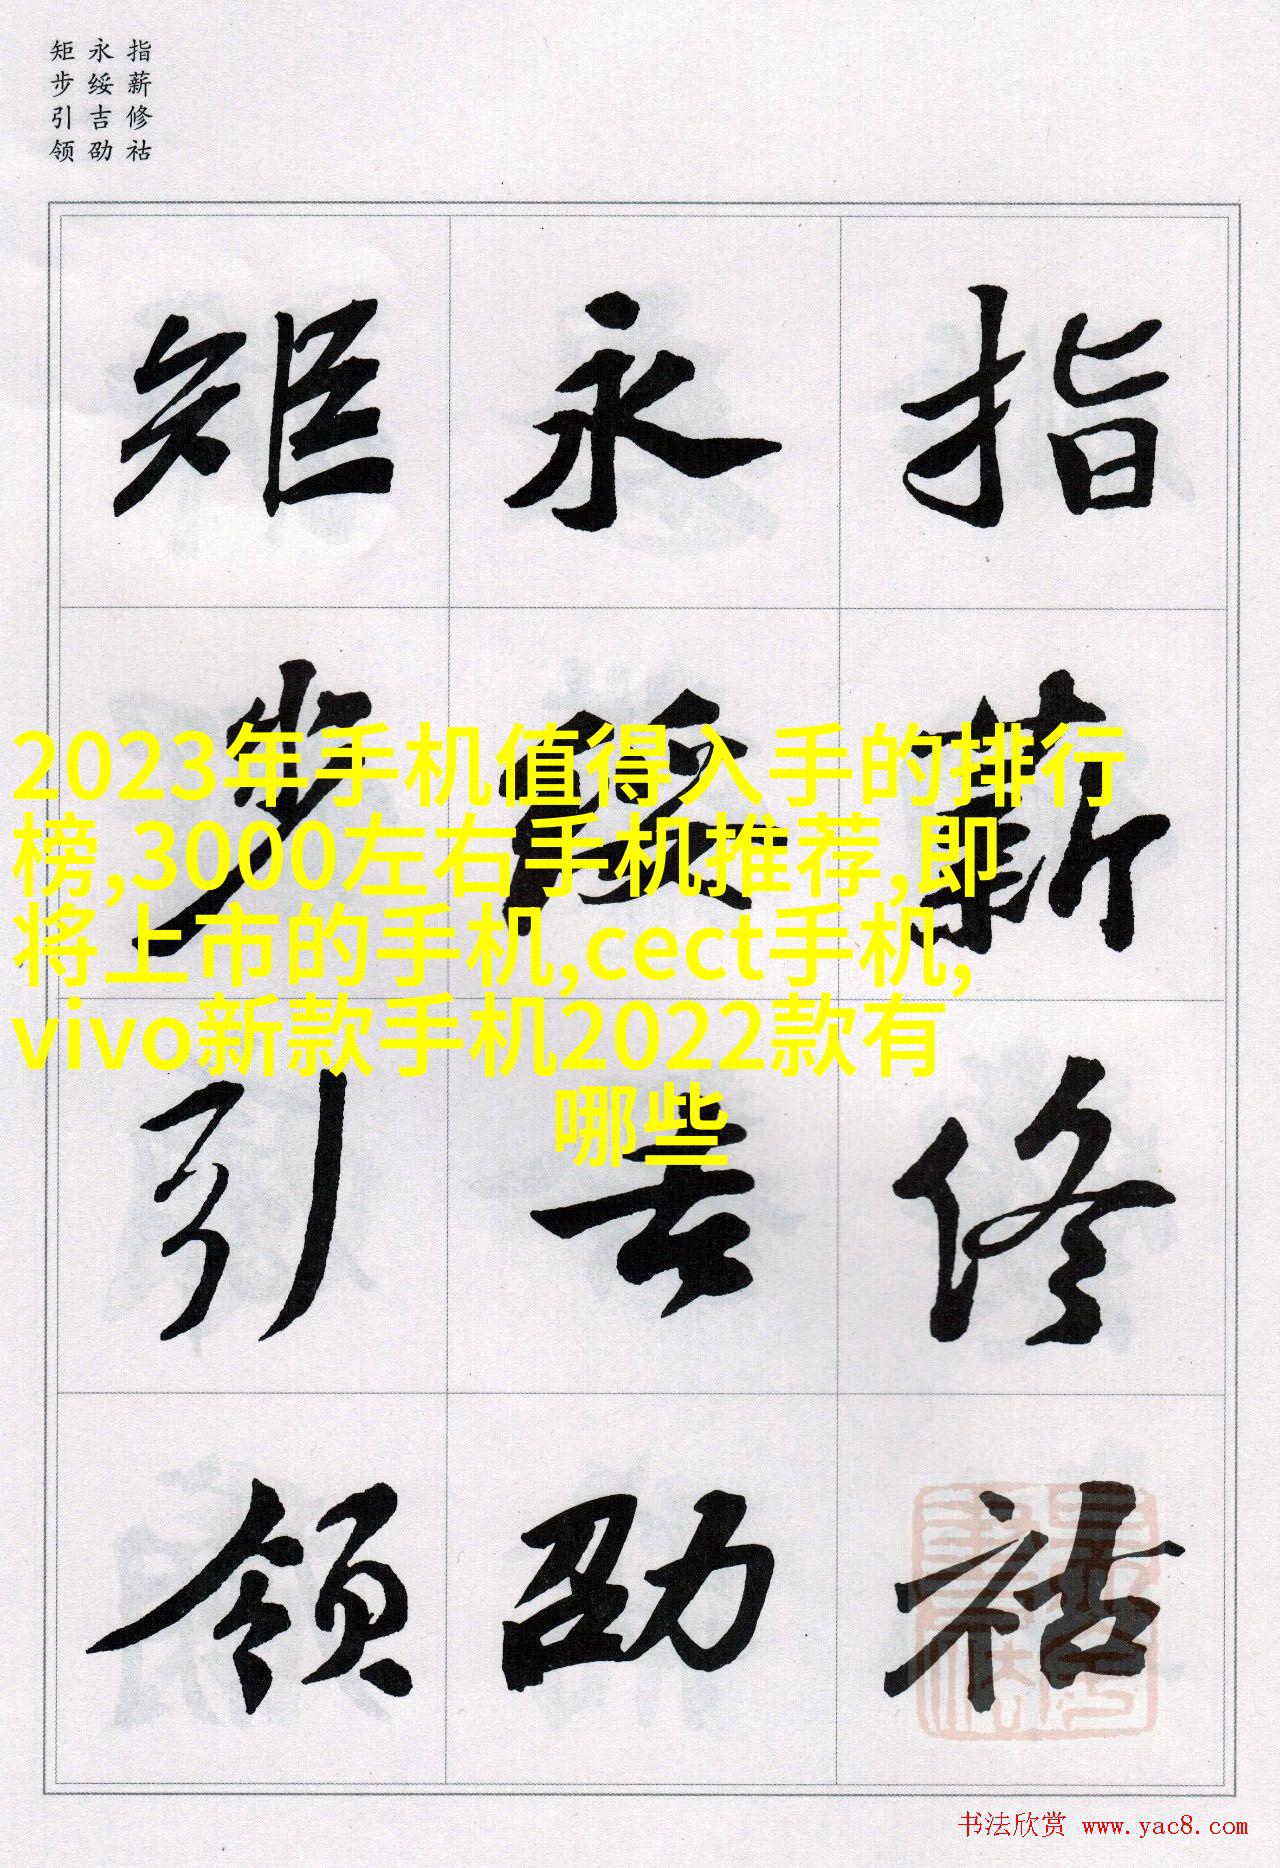 指薪修祜
永绥吉劭
矩步引领
指薪修祜
永绥吉劭
矩步引领
2023年手机值得入手的排行
榜,3000左右手机推荐,即
将上市的手机,cect手机,
vivo新款手机2022款有
哪些
书法欣赏 www.yac8.com